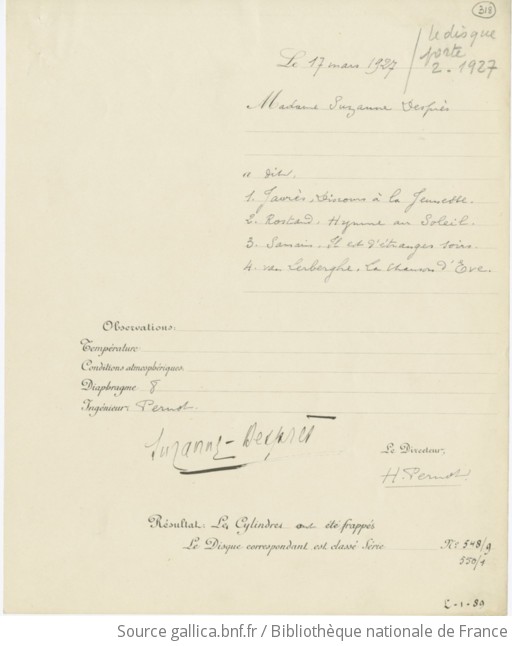 318
le disque
porte
2.1927
Le 17 mars 1927
Madame Suzanne Desprès
a dit.
1. Jaurès. Discours à la Jeunesse.
2. Rostand. Hymne au Soleil.
3. Samain. Il est d'étranges soirs.
4. van Lerberghe. La Chanson d'Eve.
Observations:
Température
Conditions atmosphériques.
Diaphragme 8
Ingénieur: Pernot.
Suzanne-Desprès
Le Directeur,
H. Pernot.
Résultat: Les Cylindres ont été frappés
Le Disque correspondant est classé Série No 548/9
550/1
C-1-89
Source gallica.bnf.fr / Bibliothèque nationale de France